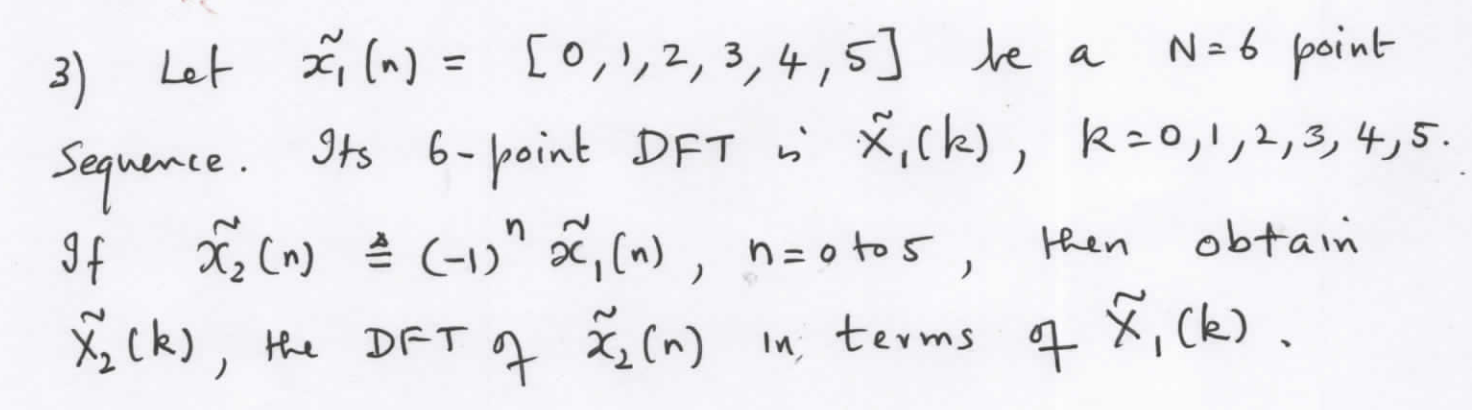 3) Let x̃₁(n) = [0,1,2,3,4,5] be a N=6 point
Sequence. Its 6-point DFT is X̃₁(k), k=0,1,2,3,4,5.
If x̃₂(n) ≜ (-1)ⁿ x̃₁(n), n=0 to 5, then obtain
X̃₂(k), the DFT of x̃₂(n) in terms of X̃₁(k).